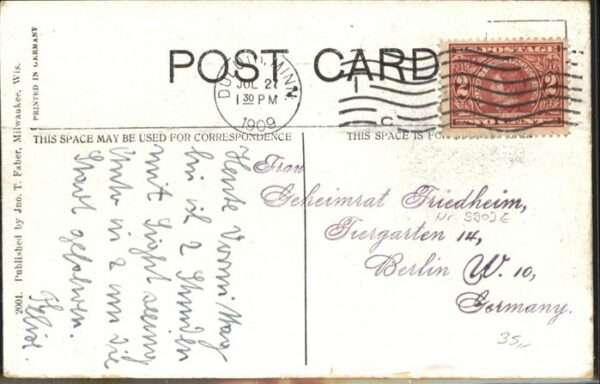 POST CARD
DULUTH, MINN.
JUL 27
1 30 PM
1909
POSTAGE
2 2
THIS SPACE MAY BE USED FOR CORRESPONDENCE
THIS SPACE IS FOR
PRINTED IN GERMANY
2001. Published by Jno. T. Faber, Milwaukee, Wis.
Heute Vormittag
bin ich 2 Stunden
mit Sight seeing
Auto in u um die
Stadt gefahren.
Frau
Geheimrat Friedheim,
Tiergarten 14,
Berlin W. 10,
Germany.
35,-